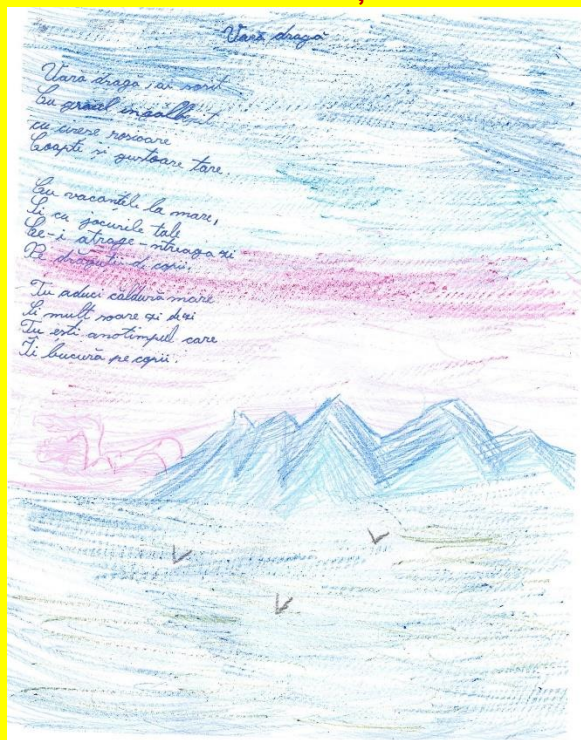 Vară dragă
Vară dragă, ai sosit
Cu graul ingălbenit
cu cirese rosioare
Coapte și gustoare tare.
Cu vacantele la mare,
Și cu jocurile tale
Ce-i atrage-ntreaga zi
Pe drăguții de copii.
Tu aduci căldură mare
Si mult soare zi de zi
Tu ești anotimpul care
Îi bucură pe copii.